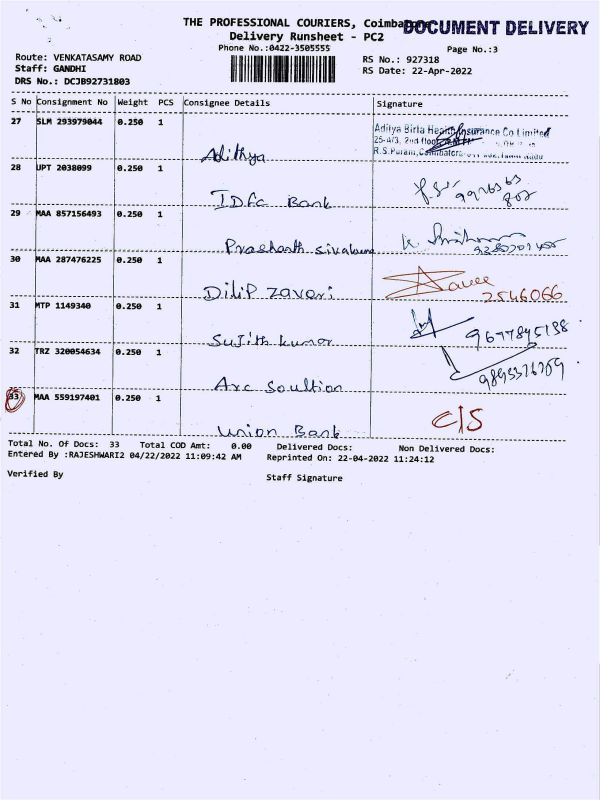 THE PROFESSIONAL COURIERS, Coimbatore
DOCUMENT DELIVERY
Delivery Runsheet - PC2
Phone No.:0422-3505555
Page No.:3
Route: VENKATASAMY ROAD
RS No.: 927318
Staff: GANDHI
RS Date: 22-Apr-2022
DRS No.: DCJB92731803
S No Consignment No Weight PCS Consignee Details Signature
27 SLM 293979044 0.250 1
Aditya Birla Health Insurance Co Limited
25-4/3, 2nd floor
R.S.Puram, Coimbatore
Adithya
28 UPT 2038099 0.250 1
IDFC Bank
29 MAA 857156493 0.250 1
Prashanth sivakuma
30 MAA 287476225 0.250 1
Dilip zavari
2546066
31 MTP 1149340 0.250 1
Sujith kumar
9677845198
32 TRZ 320054634 0.250 1
Arc Soultion
33 MAA 559197401 0.250 1
C/S
Union Bank
Total No. Of Docs: 33 Total COD Amt: 0.00 Delivered Docs: Non Delivered Docs:
Entered By :RAJESHWARI2 04/22/2022 11:09:42 AM Reprinted On: 22-04-2022 11:24:12
Verified By
Staff Signature